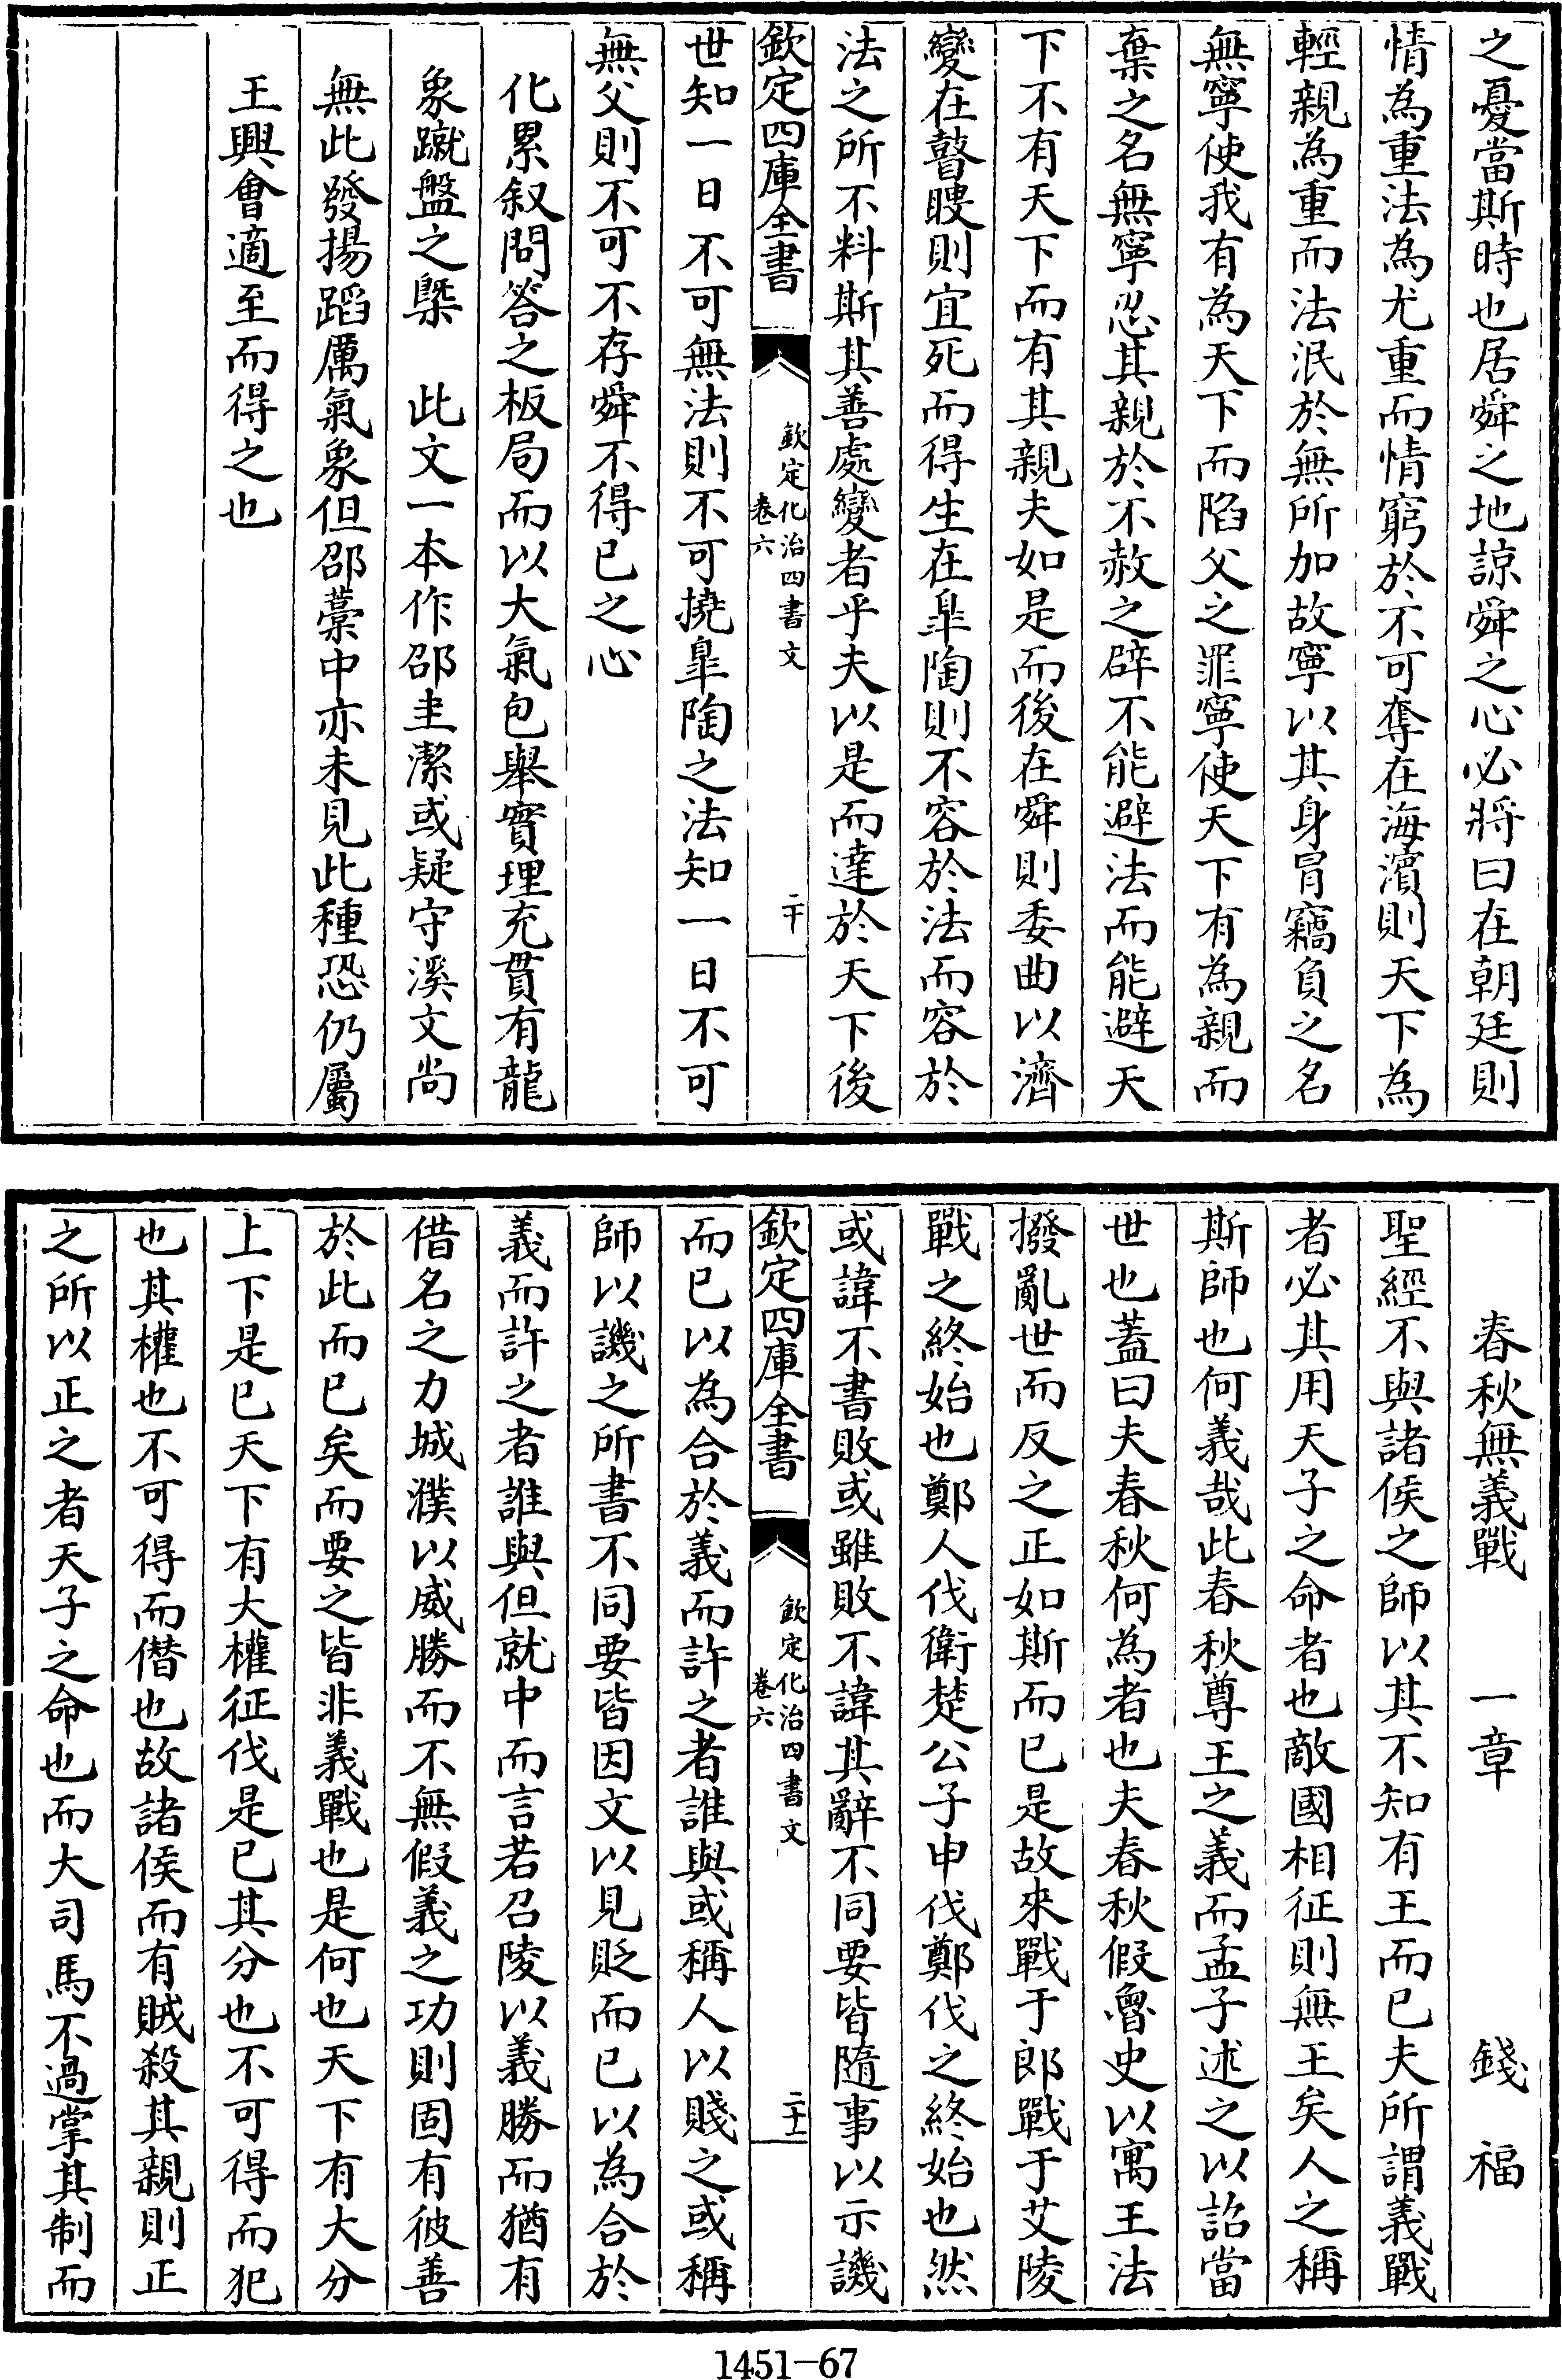 之憂當斯時也居舜之地諒舜之心必將曰在朝廷則
情為重法為尤重而情窮於不可奪在海濱則天下為
輕親為重而法泯於無所加故寧以其身冒竊負之名
無寧使我有為天下而陷父之罪寧使天下有為親而
棄之名無寧忍其親於不赦之辟不能避法而能避天
下不有天下而有其親夫如是而後在舜則委曲以濟
變在瞽瞍則宜死而得生在臯陶則不容於法而容於
法之所不料斯其善處變者乎夫以是而達於天下後
欽定四庫全書
欽定化治四書文
卷六
二十
世知一日不可無法則不可撓臯陶之法知一日不可
無父則不可不存舜不得已之心
化累叙問答之板局而以大氣包舉實理充貫有龍
象蹴盤之槩　此文一本作邵圭潔或疑守溪文尚
無此發揚蹈厲氣象但邵藁中亦未見此種恐仍屬
王興會適至而得之也
春秋無義戰　一章　錢福
聖經不與諸侯之師以其不知有王而已夫所謂義戰
者必其用天子之命者也敵國相征則無王矣人之稱
斯師也何義哉此春秋尊王之義而孟子述之以詔當
世也蓋曰夫春秋何為者也夫春秋假魯史以寓王法
撥亂世而反之正如斯而已是故來戰于郎戰于艾陵
戰之終始也鄭人伐衛楚公子申伐鄭伐之終始也然
或諱不書敗或雖敗不諱其辭不同要皆隨事以示譏
欽定四庫全書
欽定化治四書文
卷六
二十一
而已以為合於義而許之者誰與或稱人以賤之或稱
師以譏之所書不同要皆因文以見貶而已以為合於
義而許之者誰與但就中而言若召陵以義勝而猶有
借名之力城濮以威勝而不無假義之功則固有彼善
於此而已矣而要之皆非義戰也是何也天下有大分
上下是已天下有大權征伐是已其分也不可得而犯
也其權也不可得而僭也故諸侯而有賊殺其親則正
之所以正之者天子之命也而大司馬不過掌其制而
1451-67